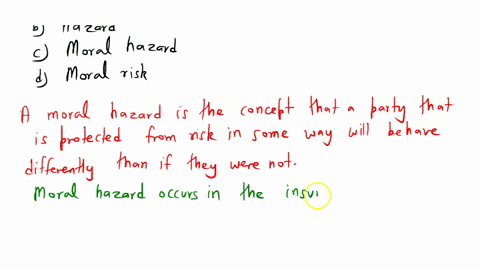 b) Hazard
c) Moral hazard
d) Moral risk
A moral hazard is the concept that a party that
is protected from risk in some way will behave
differently than if they were not.
Moral hazard occurs in the insu